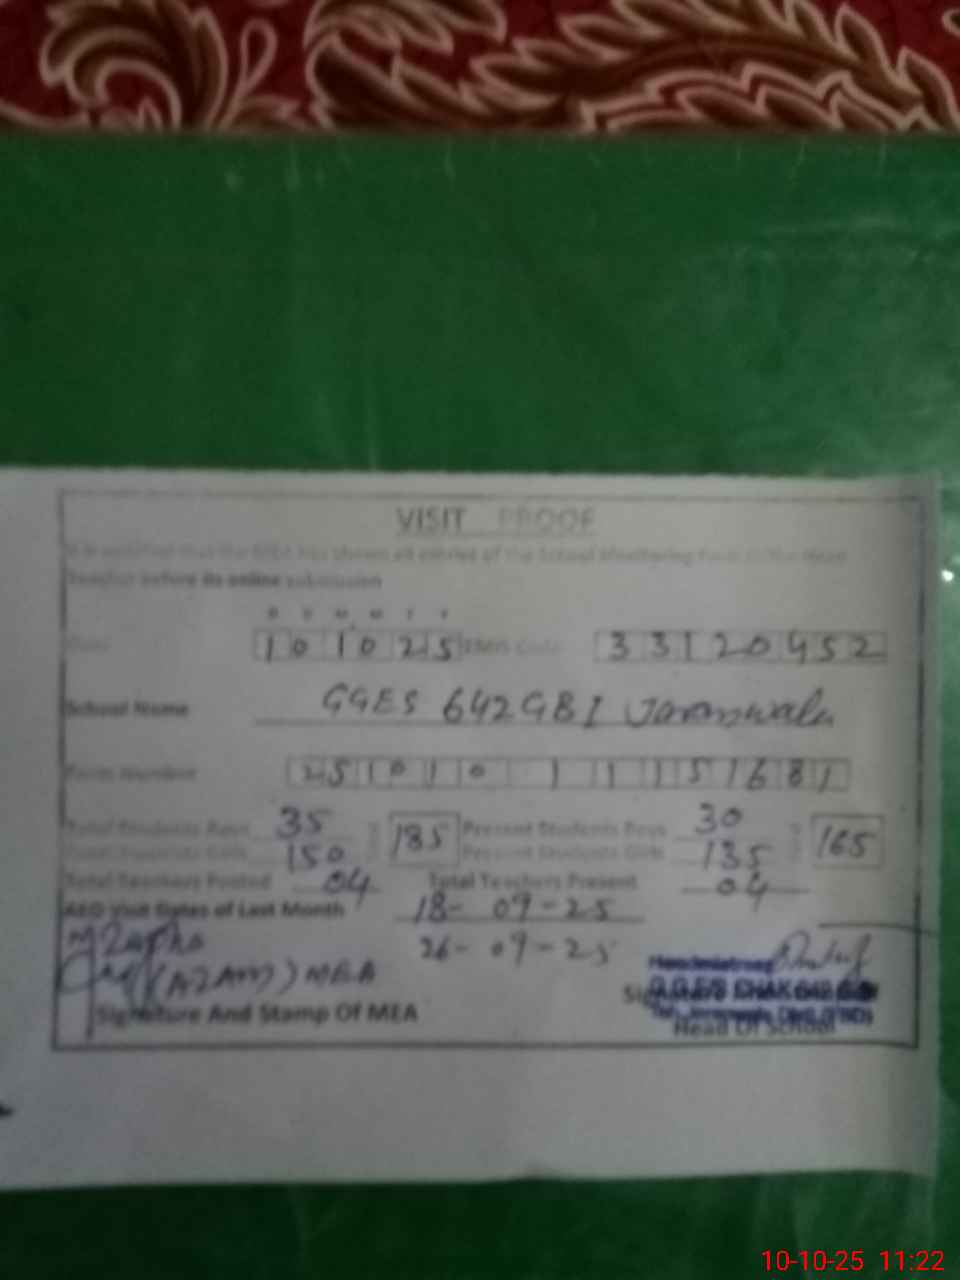 VISIT PROOF
It is certified that the MEA has shown all entries of the School Monitoring Form to the Head
Teacher before its online submission
D D M M Y Y
Date 101025 EMIS Code 33120452
School Name GGES 642GBI Jaranwala
Form Number 251010
Total Students Boys 35 185 Present Students Boys 30 165
Total Students Girls 150 Present Students Girls 135
Total Teachers Posted 04 Total Teachers Present 04
AEO Visit Dates of Last Month 18-09-25
26-09-25
(AZAM) MEA
Signature And Stamp Of MEA
Headmistress
G.G.E/S CHAK 642 G.B
Head Of School
10-10-25 11:22